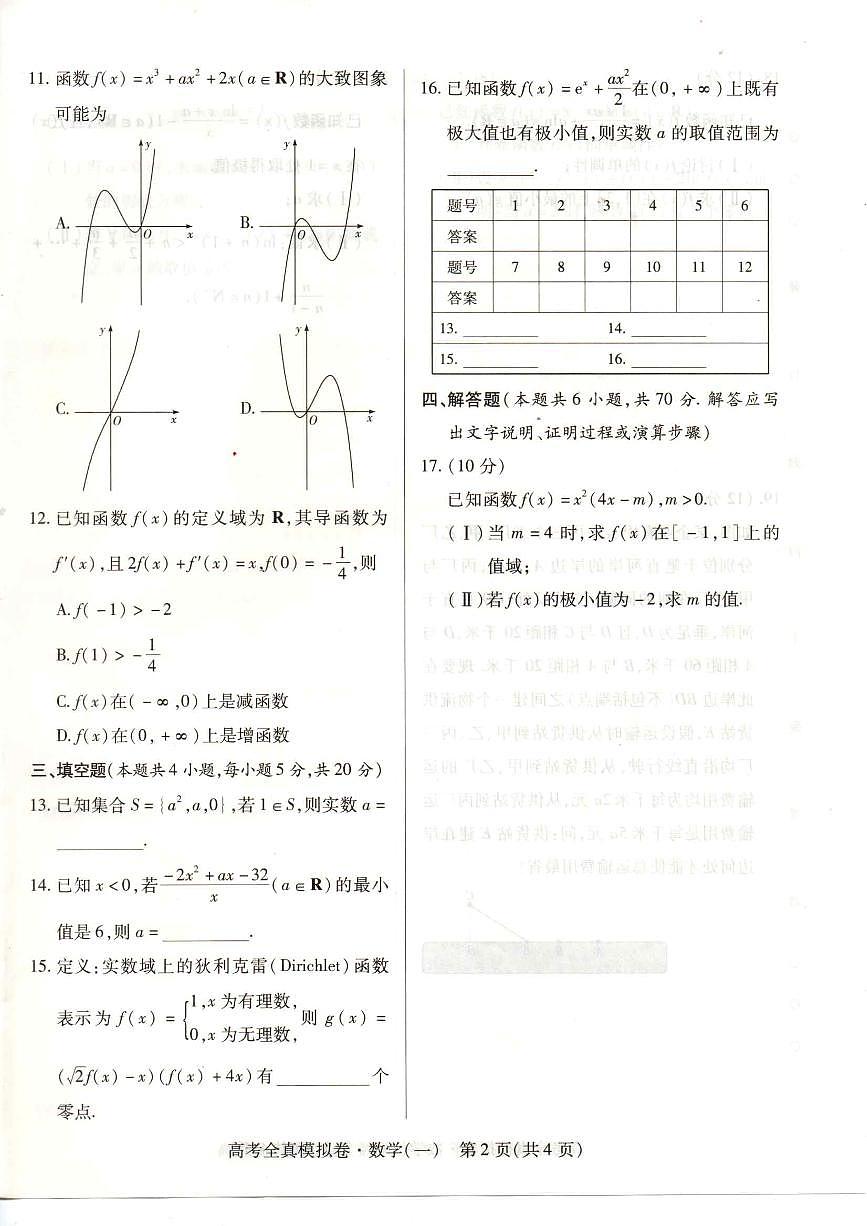 11. 函数f(x)=x³+ax²+2x(a∈R)的大致图象
可能为
A.
y
O
x
B.
y
O
x
C.
y
O
x
D.
y
O
x
12. 已知函数f(x)的定义域为 R,其导函数为
f′(x),且2f(x)+f′(x)=x,f(0)=-1/4,则
A.f(-1)>-2
B.f(1)>-1/4
C.f(x)在(-∞,0)上是减函数
D.f(x)在(0,+∞)上是增函数
三、填空题(本题共4小题,每小题5分,共20分)
13. 已知集合S={a²,a,0},若1∈S,则实数a=
________.
14. 已知x<0,若(-2x²+ax-32)/x(a∈R)的最小
值是6,则a=________.
15. 定义:实数域上的狄利克雷(Dirichlet)函数
表示为f(x)={1,x为有理数,
0,x为无理数,
则 g(x)=
(√2f(x)-x)(f(x)+4x)有________个
零点.
16. 已知函数f(x)=eˣ+ax²/2在(0,+∞)上既有
极大值也有极小值,则实数a的取值范围为
________.
题号 1 2 3 4 5 6
答案
题号 7 8 9 10 11 12
答案
13. ________ 14. ________
15. ________ 16. ________
四、解答题(本题共6小题,共70分.解答应写
出文字说明、证明过程或演算步骤)
17. (10分)
已知函数f(x)=x²(4x-m),m>0.
(Ⅰ)当m=4时,求f(x)在[-1,1]上的
值域;
(Ⅱ)若f(x)的极小值为-2,求m的值.
高考全真模拟卷·数学(一) 第2页(共4页)